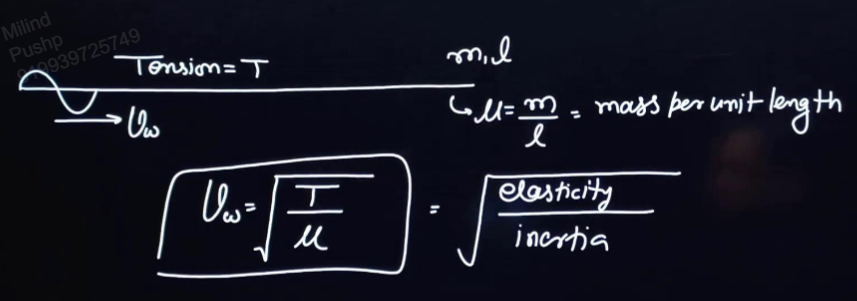 Milind
Pushp
919939725749
Tension = T
m, l
↳ μ = m/l = mass per unit length
→ Vω
Vω = √(T/μ) = √(elasticity/inertia)